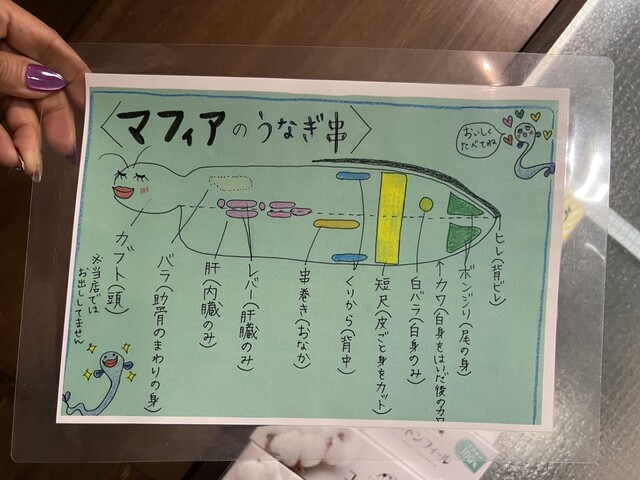 〈マフィアのうなぎ串〉
おいしく
たべてね
ヒレ(背ビレ)
ボンジリ(尾の身)
↑カワ(白身をはいだ後のカワ)
白バラ(白身のみ)
短尺(皮ごと身をカット)
くりから(背中)
串巻き(おなか)
レバー(肝臓のみ)
肝(内臓のみ)
バラ(肋骨のまわりの身)
カブト(頭)
※当店では
お出ししてません